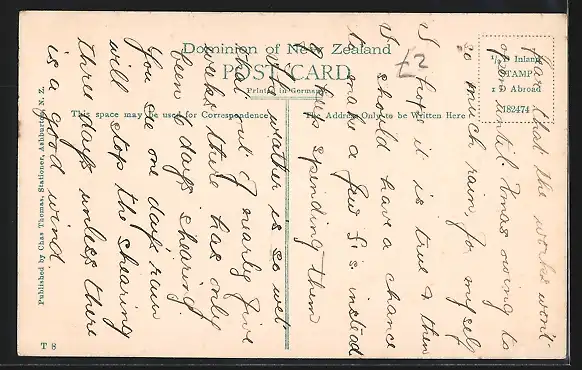 Dominion of New Zealand
POST CARD
Printed in Germany
This space may be used for Correspondence
The Address Only to be Written Here
½ D Inland
STAMP
1 D Abroad
182474
Published by Chas Thomas, Stationer, Ashburton N. Z.
T 8
that the works won't
open until Xmas owing to
so much rain, for myself
I hope it is true & then
I should have a chance
to make a few £'s instead
of spending them
The weather is so wet
that out of nearly five
weeks there has only
been 6 days shearing.
You see one day's rain
will stop the shearing
three days unless there
is a good wind.